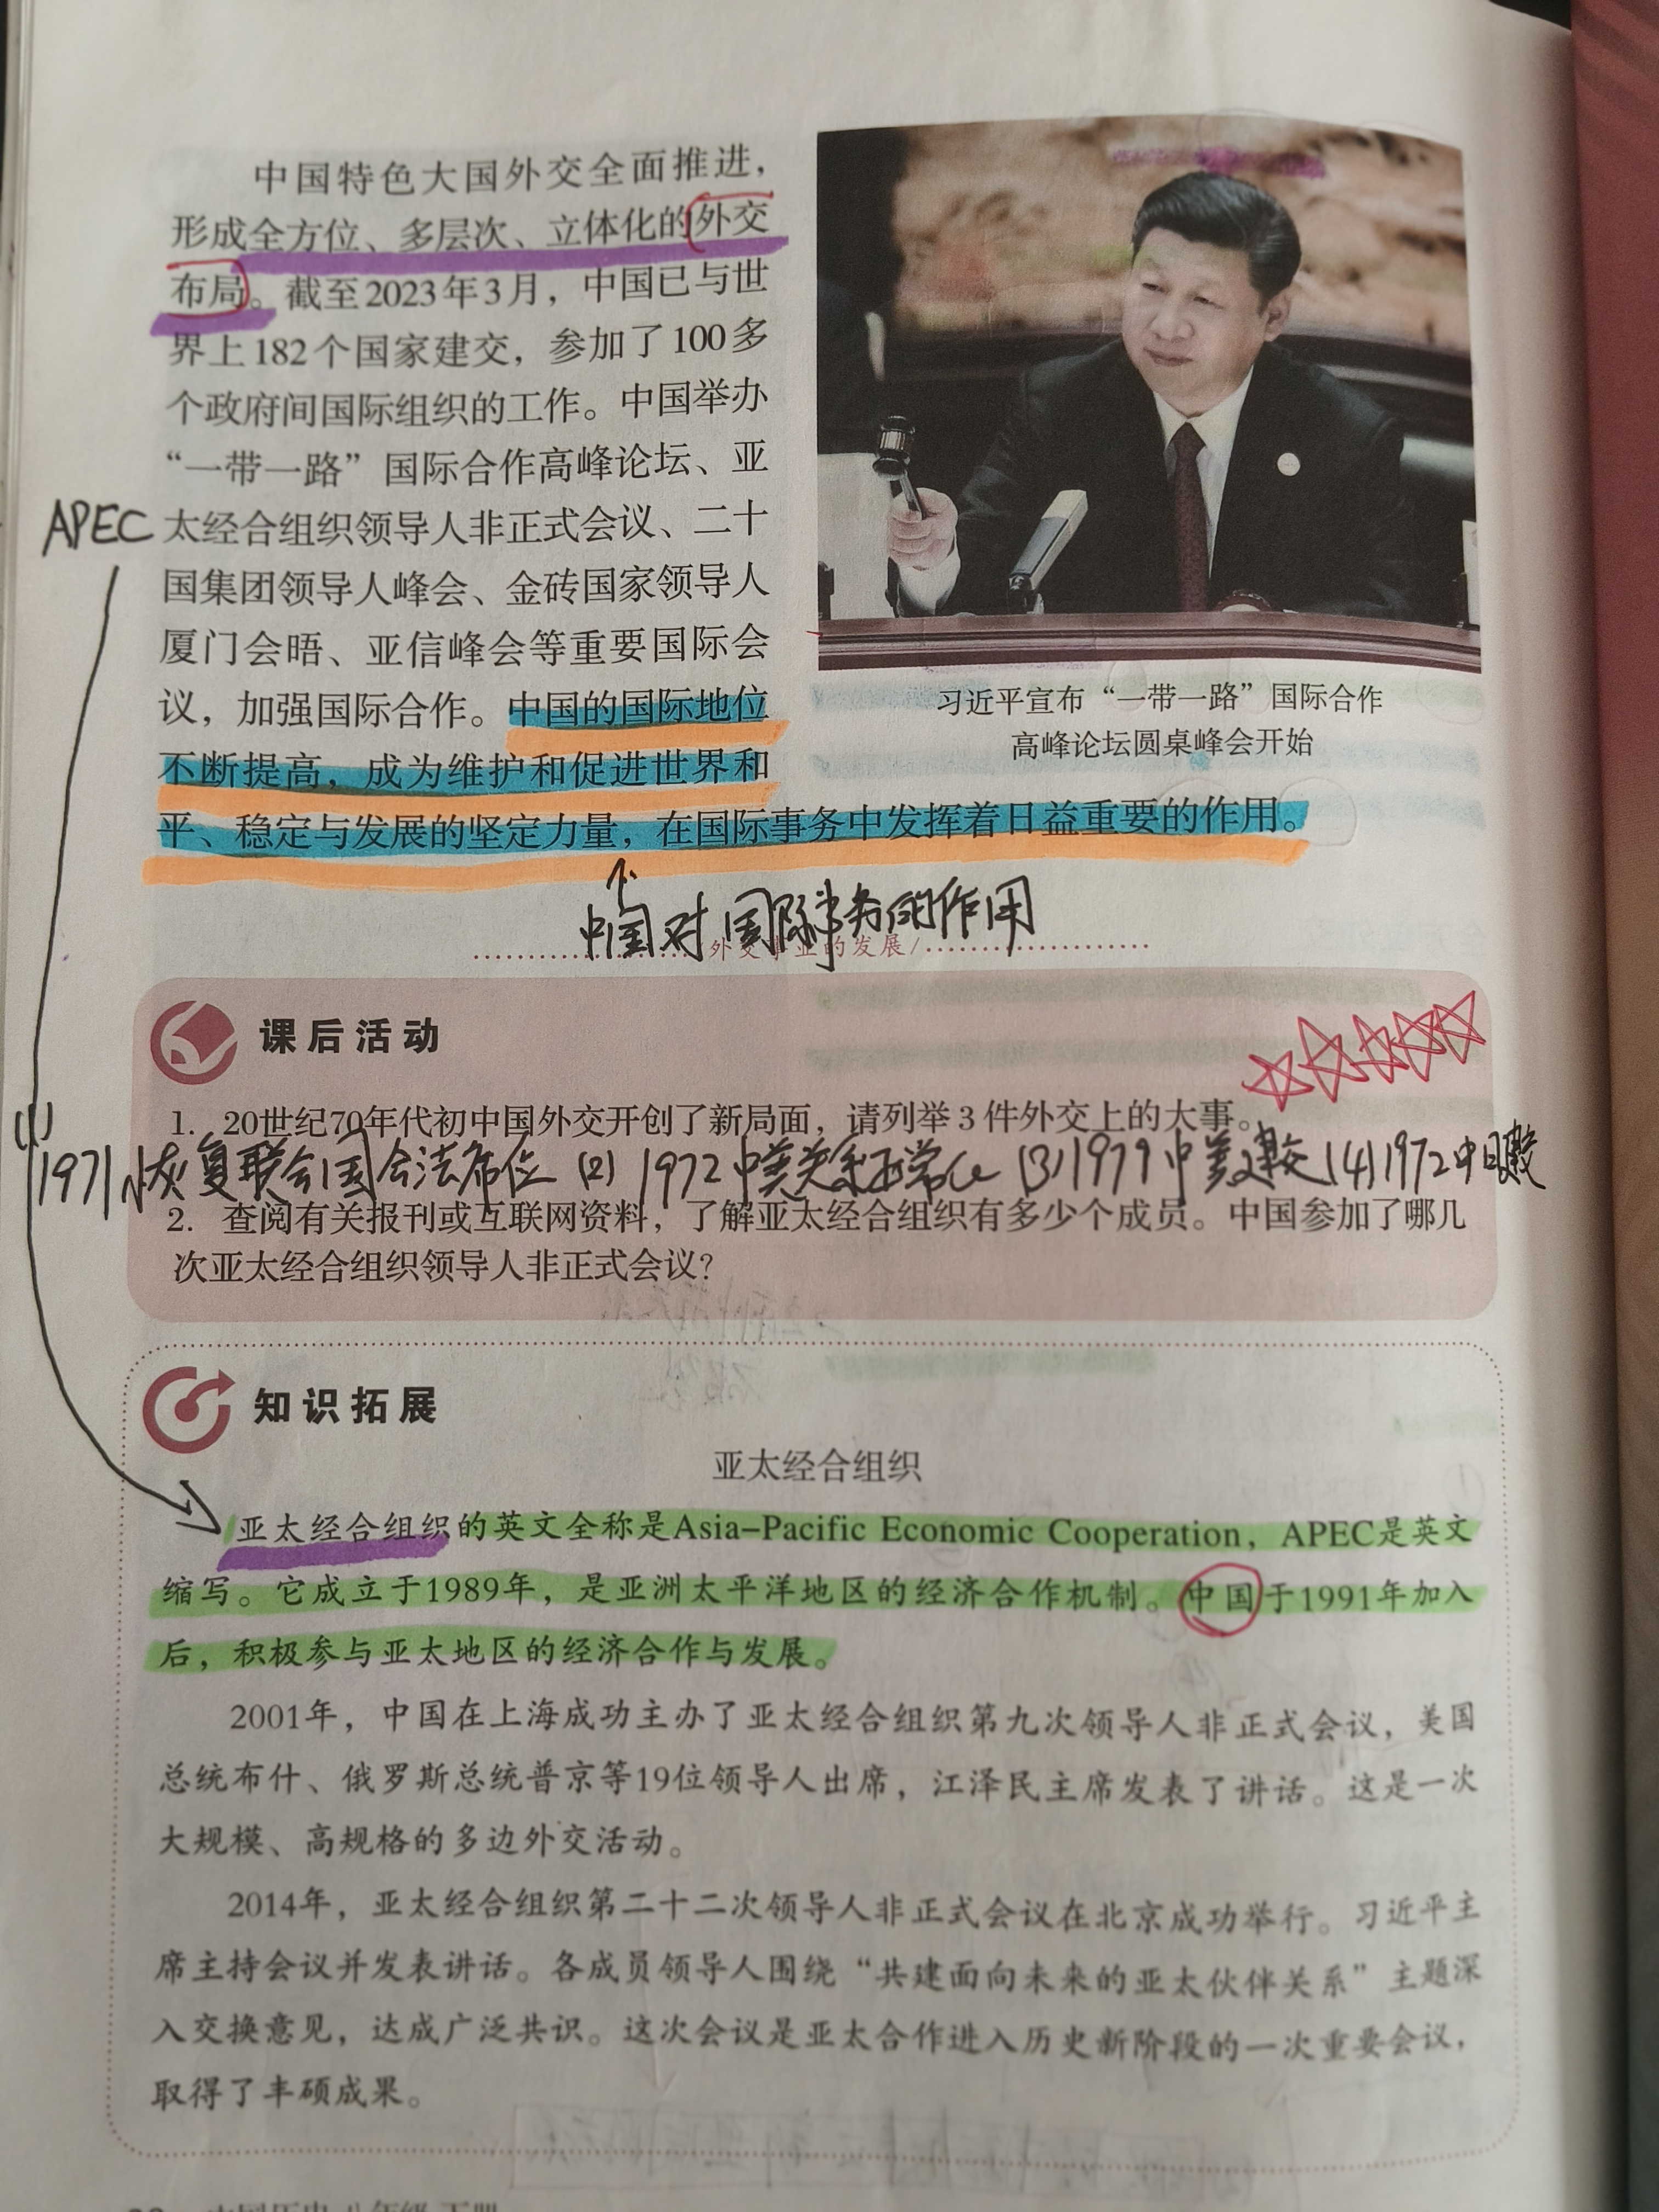 中国特色大国外交全面推进，
形成全方位、多层次、立体化的外交
布局。截至2023年3月，中国已与世
界上182个国家建交，参加了100多
个政府间国际组织的工作。中国举办
“一带一路”国际合作高峰论坛、亚
APEC
太经合组织领导人非正式会议、二十
国集团领导人峰会、金砖国家领导人
厦门会晤、亚信峰会等重要国际会
议，加强国际合作。中国的国际地位
不断提高，成为维护和促进世界和
平、稳定与发展的坚定力量，在国际事务中发挥着日益重要的作用。
习近平宣布“一带一路”国际合作
高峰论坛圆桌峰会开始
中国对国际事务的作用
外交事业的发展/
课后活动
1. 20世纪70年代初中国外交开创了新局面，请列举3件外交上的大事。
(1) 1971恢复联合国合法席位 (2) 1972中美关系正常化 (3) 1979中美建交 (4) 1972中日建交
2. 查阅有关报刊或互联网资料，了解亚太经合组织有多少个成员。中国参加了哪几
次亚太经合组织领导人非正式会议？
知识拓展
亚太经合组织
亚太经合组织的英文全称是Asia–Pacific Economic Cooperation，APEC是英文
缩写。它成立于1989年，是亚洲太平洋地区的经济合作机制。中国于1991年加入
后，积极参与亚太地区的经济合作与发展。
2001年，中国在上海成功主办了亚太经合组织第九次领导人非正式会议，美国
总统布什、俄罗斯总统普京等19位领导人出席，江泽民主席发表了讲话。这是一次
大规模、高规格的多边外交活动。
2014年，亚太经合组织第二十二次领导人非正式会议在北京成功举行。习近平主
席主持会议并发表讲话。各成员领导人围绕“共建面向未来的亚太伙伴关系”主题深
入交换意见，达成广泛共识。这次会议是亚太合作进入历史新阶段的一次重要会议，
取得了丰硕成果。